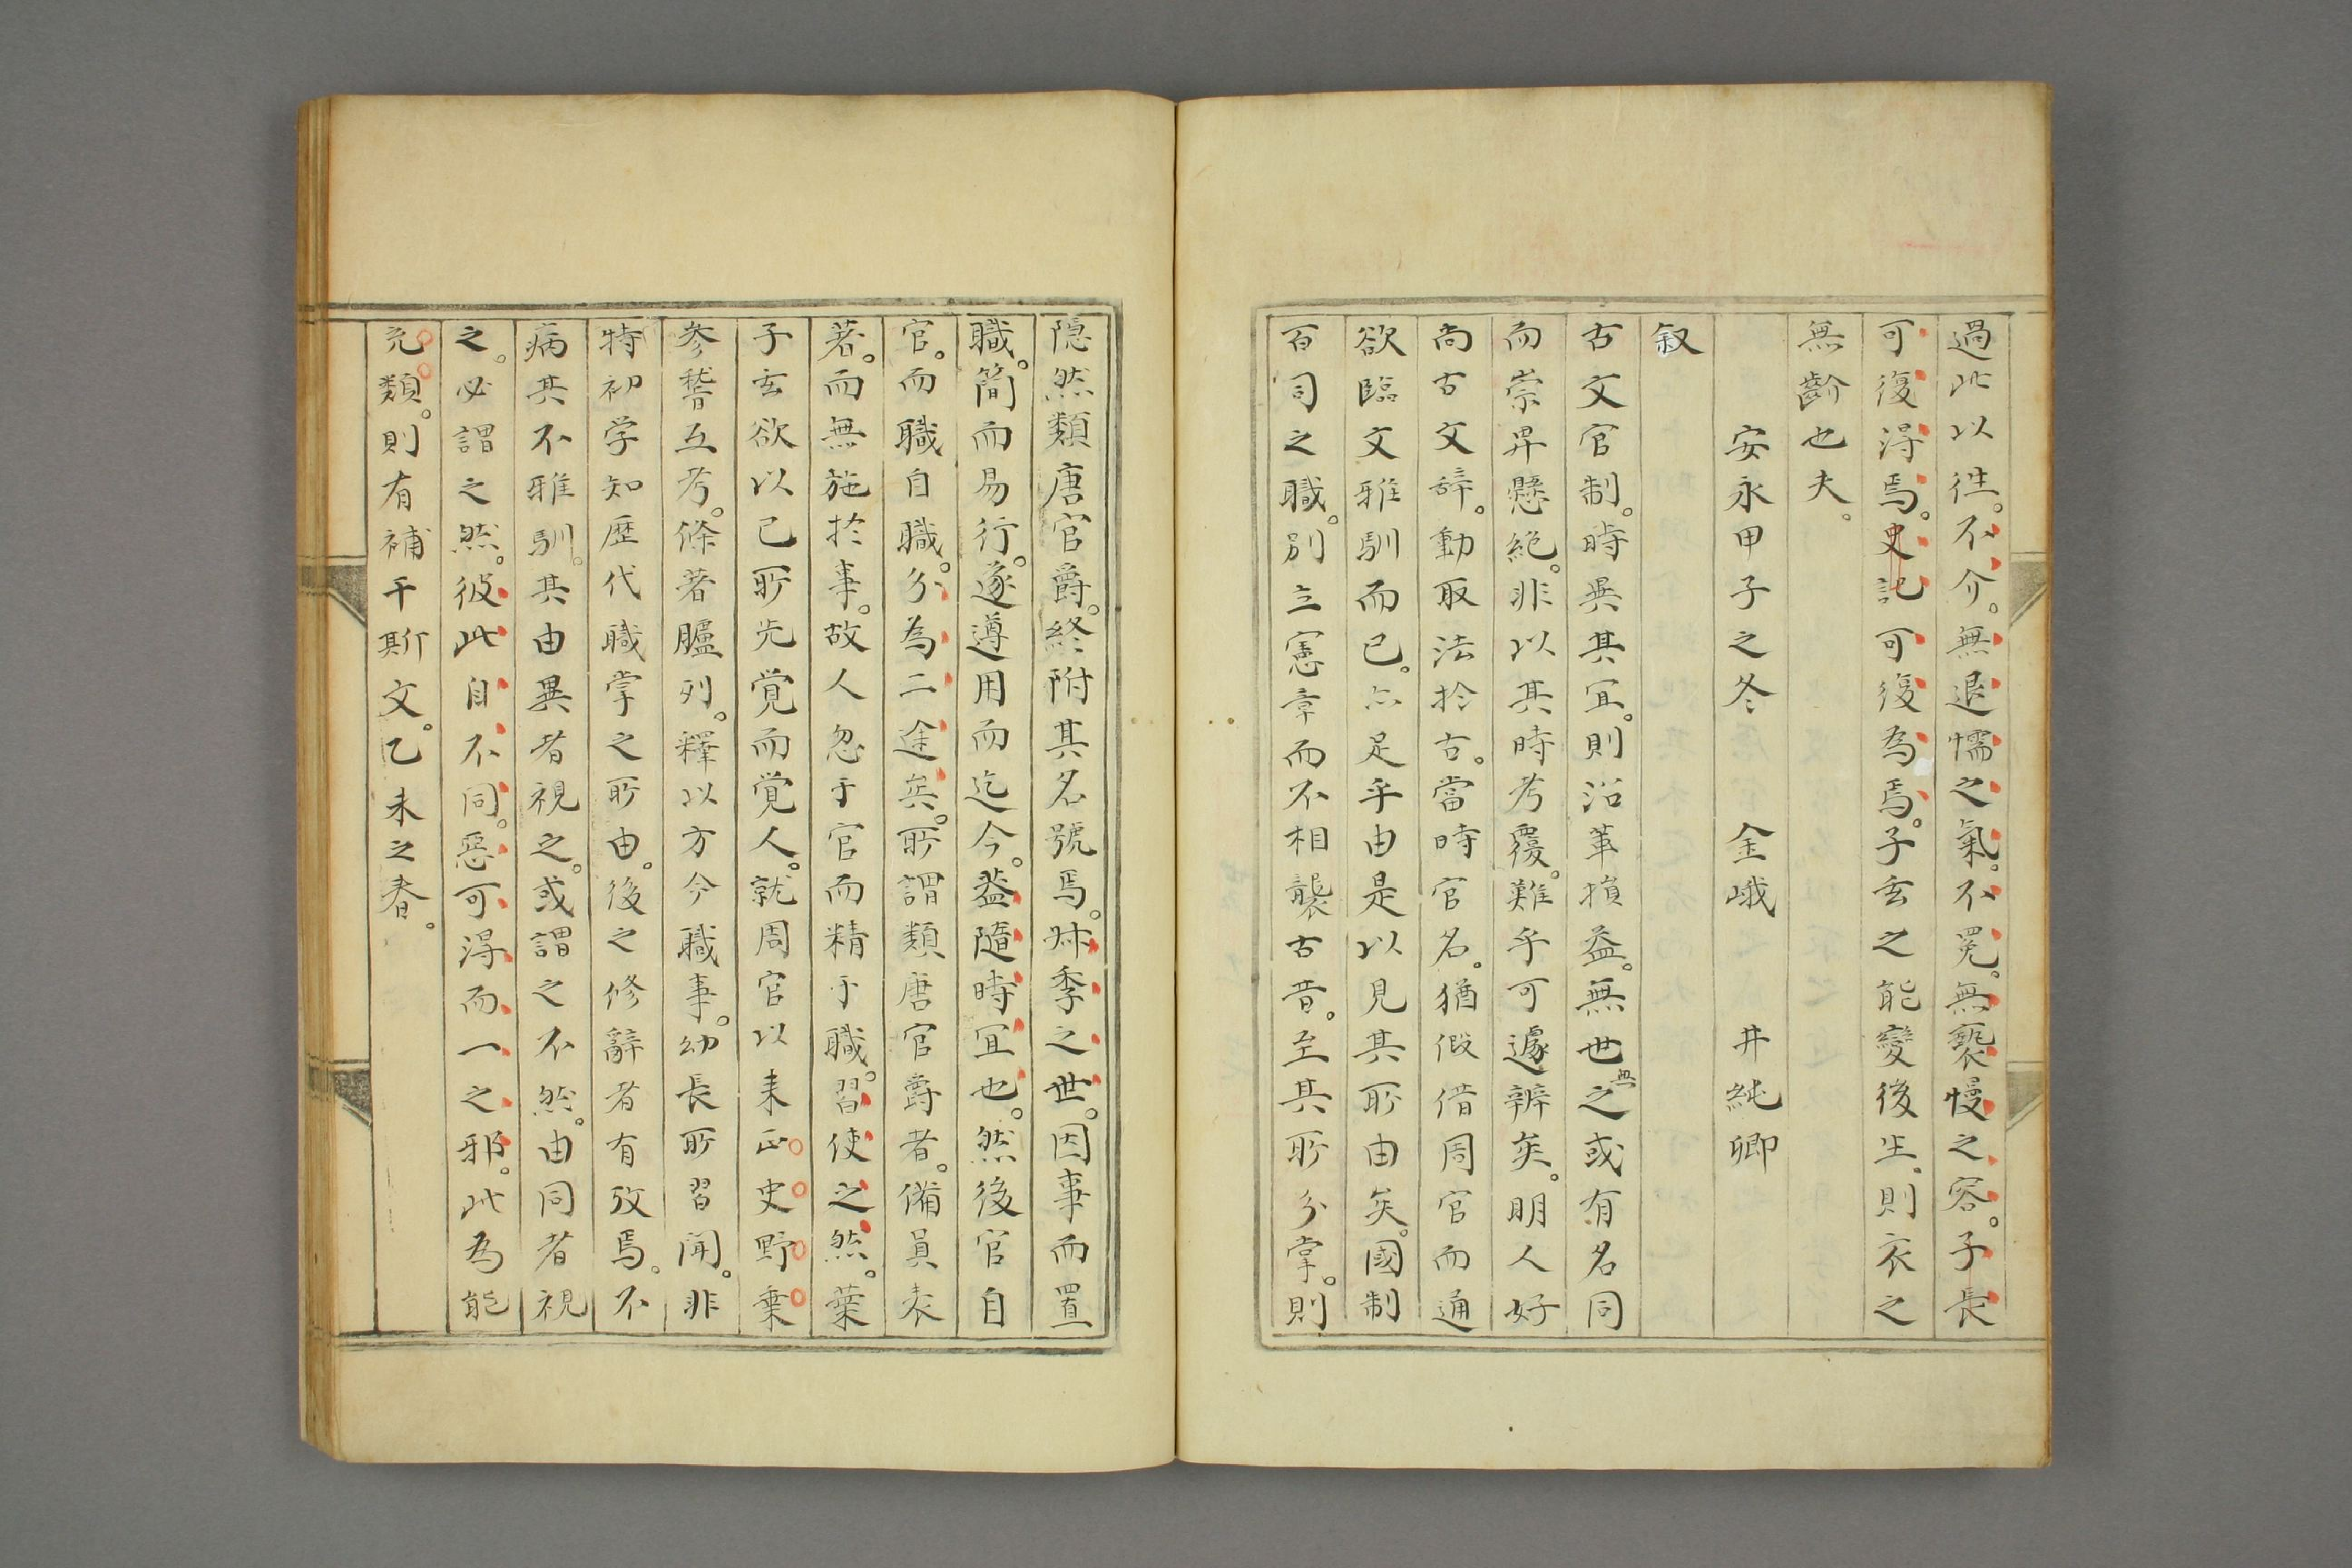 過此以徃。不介。無退懦之氣。不冕。無褻慢之容。子長
可復得焉。史記可復為焉。子玄之能變後生、則衣之
無齡也夫。
安永甲子之冬　金峨　井純卿
叙
古文官制。時異其冝。則沿革損益。無世無之或有名同
而崇卑懸絶。非以其時考覆。難乎可遽辨矣。明人好
尚古文辞。動取法於古。當時官名。猶假借周官而通
欲臨文雅馴而已。亦足乎由是以見其所由矣。國制
百司之職。別立憲章而不相襲古昔。至其所分掌。則
隠然類唐官爵。終附其名號焉。叔季之世。因事而置
職。簡而易行。遂遵用而迄今。蓋隨時冝也。然後官自
官。而職自職。分為二途矣。所謂類唐官爵者。備員表
著。而無施於事。故人忽于官而精于職。習使之然。葉
子玄欲以已所先覚而覚人。就周官以来正史野乗
参誊互考。條著臚列。釋以方今職事。幼長所習聞。非
特初学知歴代職掌之所由。後之修辭者有攷焉。不
病其不雅馴。其由異者視之。或謂之不然。由同者視
之。必謂之然。彼此自不同。惡可得而一之邪。此為能
充類。則有補于斯文。乙未之春。